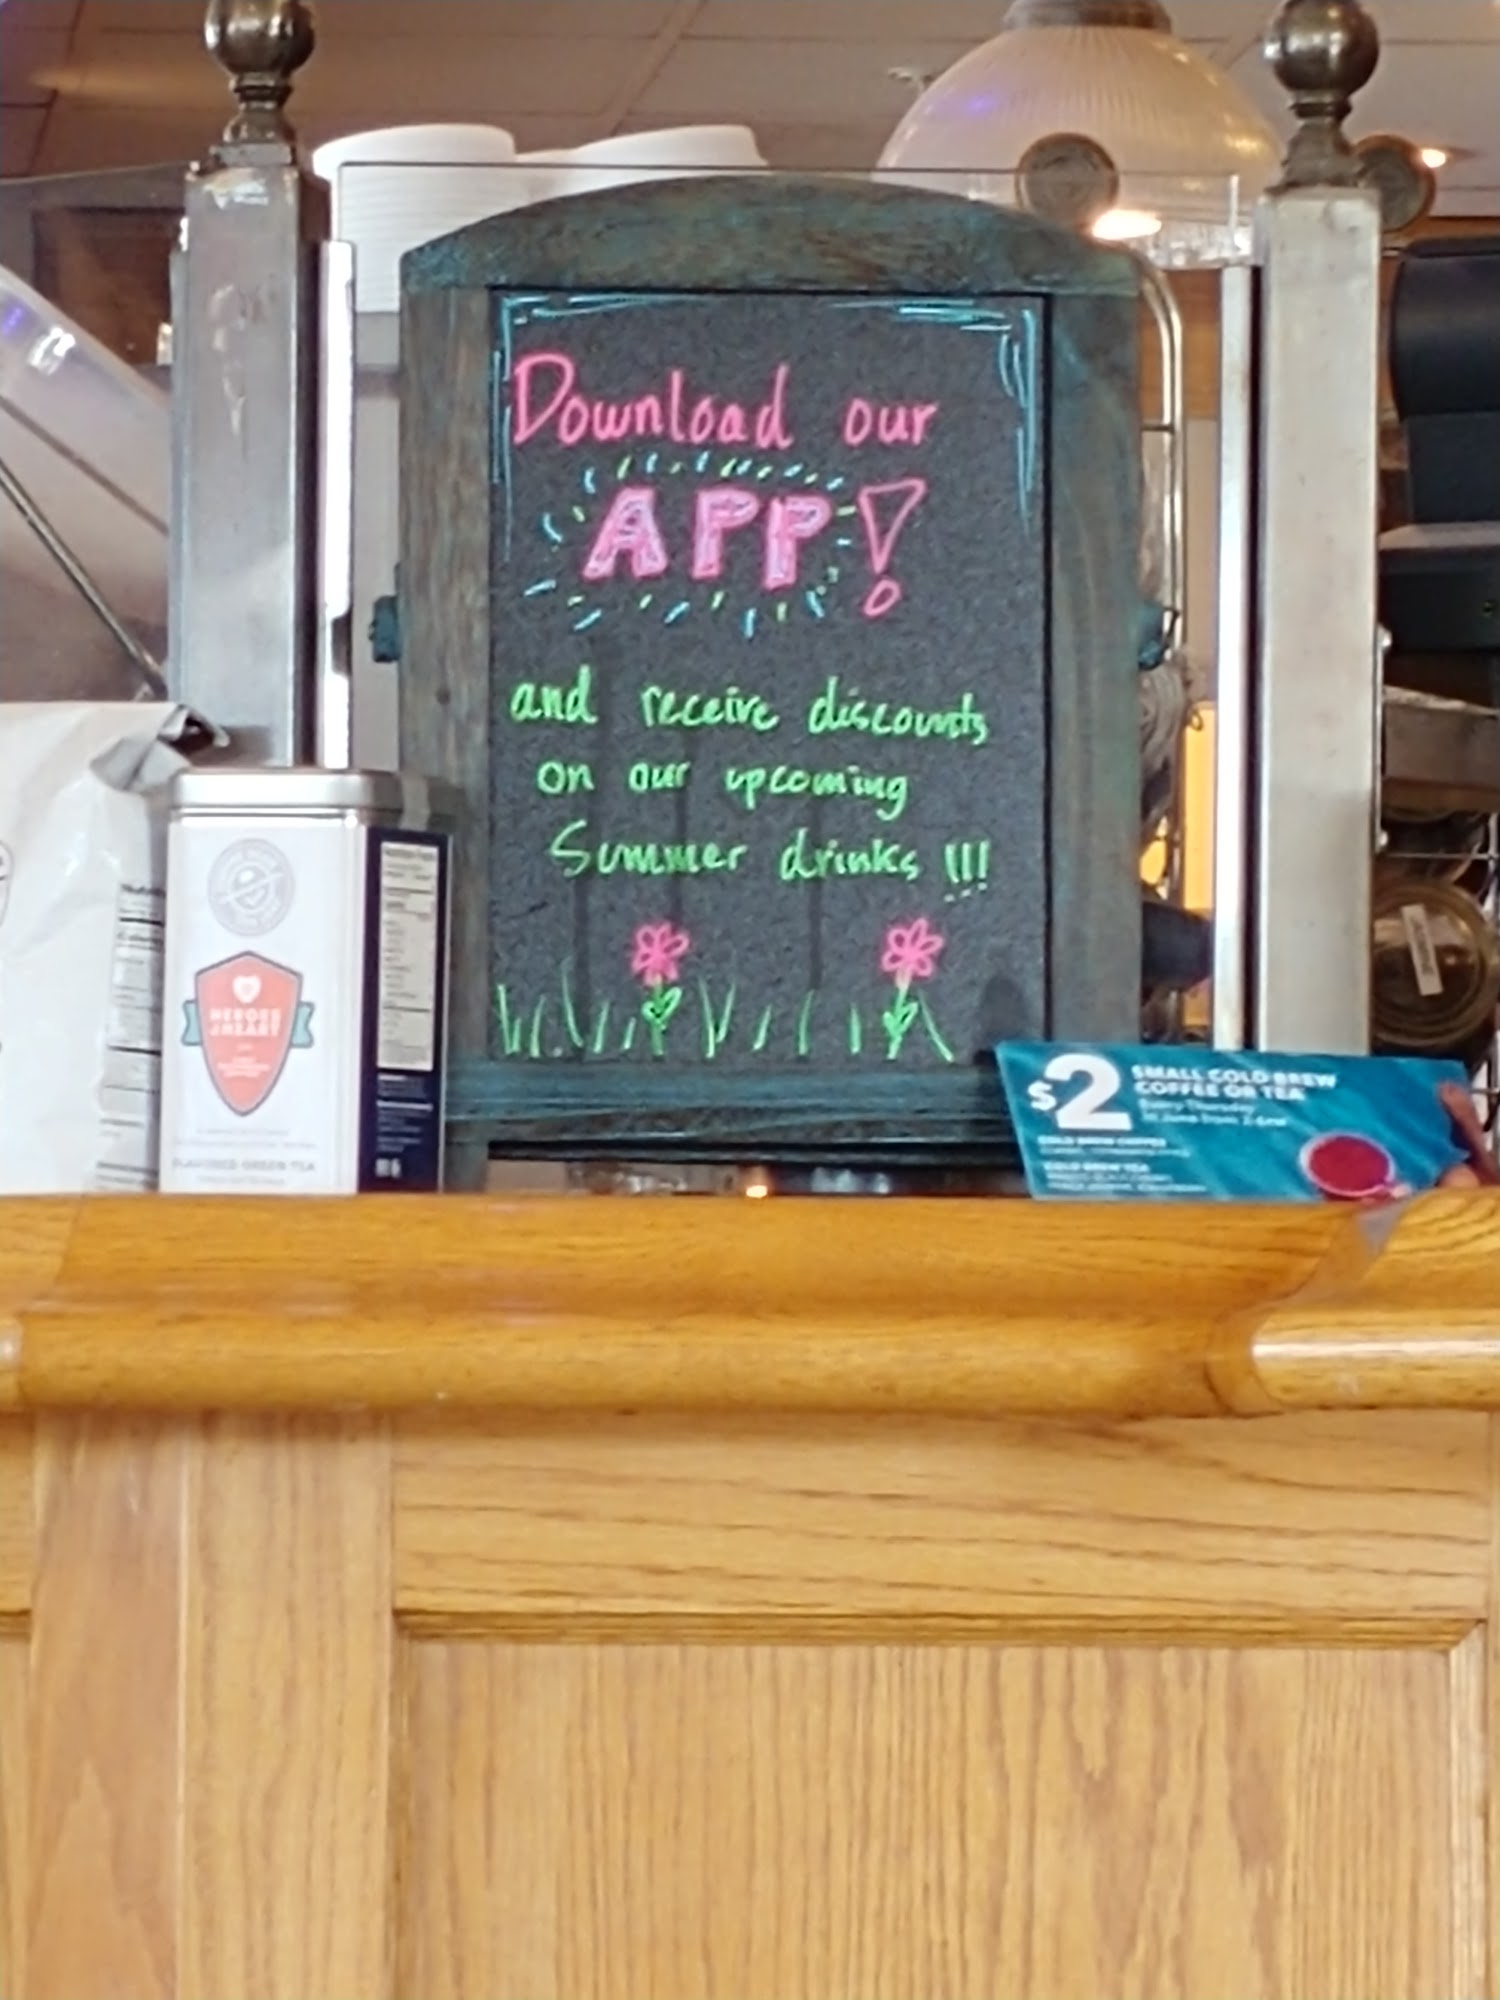 Download our
APP!
and receive discounts
on our upcoming
Summer drinks !!!
HEROES
FLAVORED GREEN TEA
$2
SMALL COLD BREW
COFFEE OR TEA
Every Thursday
in June from 2-6PM
COLD BREW COFFEE
COLD BREW TEA